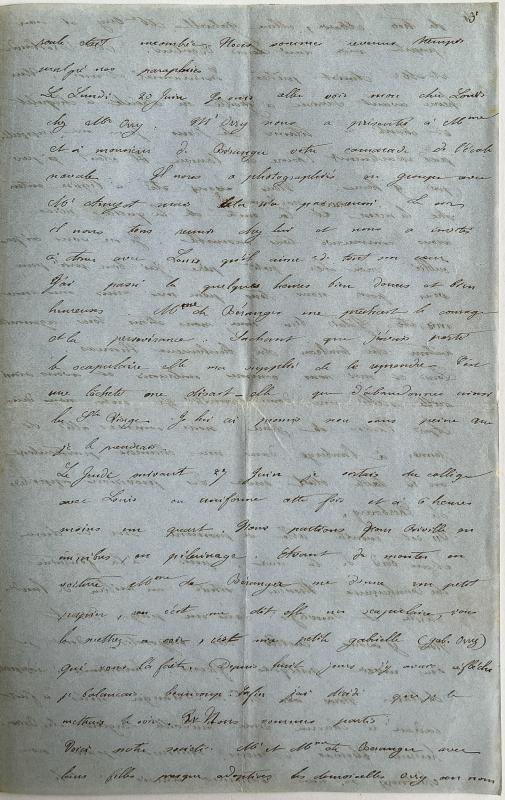 3e
seule était incombie. Nous sommes revenus trempés
malgré nos parapluies
Le Lundi 20 Juin je suis allé voir mon cher Louis
chez Mr Orry. Mr Orry nous a présentés à Mme
et à monsieur de Béranger votre camarade de l'école
navale. Il nous a photographiés en groupe avec
Mr mais cela n'a pas réussi. Le soir
il nous tous réunis chez lui et nous a invités
à dîner avec Louis qu'il aime de tout son cœur
J'ai passé là quelques heures bien douces et bien
heureuses. Mme de Béranger me prêchait le courage
et la persévérance. Sachant que j'avais porté
le scapulaire elle m'a supplié de le reprendre. C'est
une lâcheté me disait-elle que d'abandonner ainsi
la Ste Vierge. Je lui ai promis non sans peine que
je le prendrais
Le Jeudi suivant 27 Juin je sortais du collège
avec Louis en uniforme cette fois et à 6 heures
moins un quart. Nous partions pour en
omnibus en pèlerinage. Avant de monter en
voiture Mme de Béranger me donne un petit
papier, ceci est me dit elle un scapulaire, vous
le mettrez ce soir, c'est ma petite gabrielle (gab. Orry)
qui vous l'a fait. Depuis huit jours j'y avais réfléchi
je balançais beaucoup. Enfin j'ai décidé que je le
mettrais le soir. Nous sommes partis.
Voici notre société. Mr et Mme de Béranger avec
leurs filles presque adoptives les demoiselles Orry